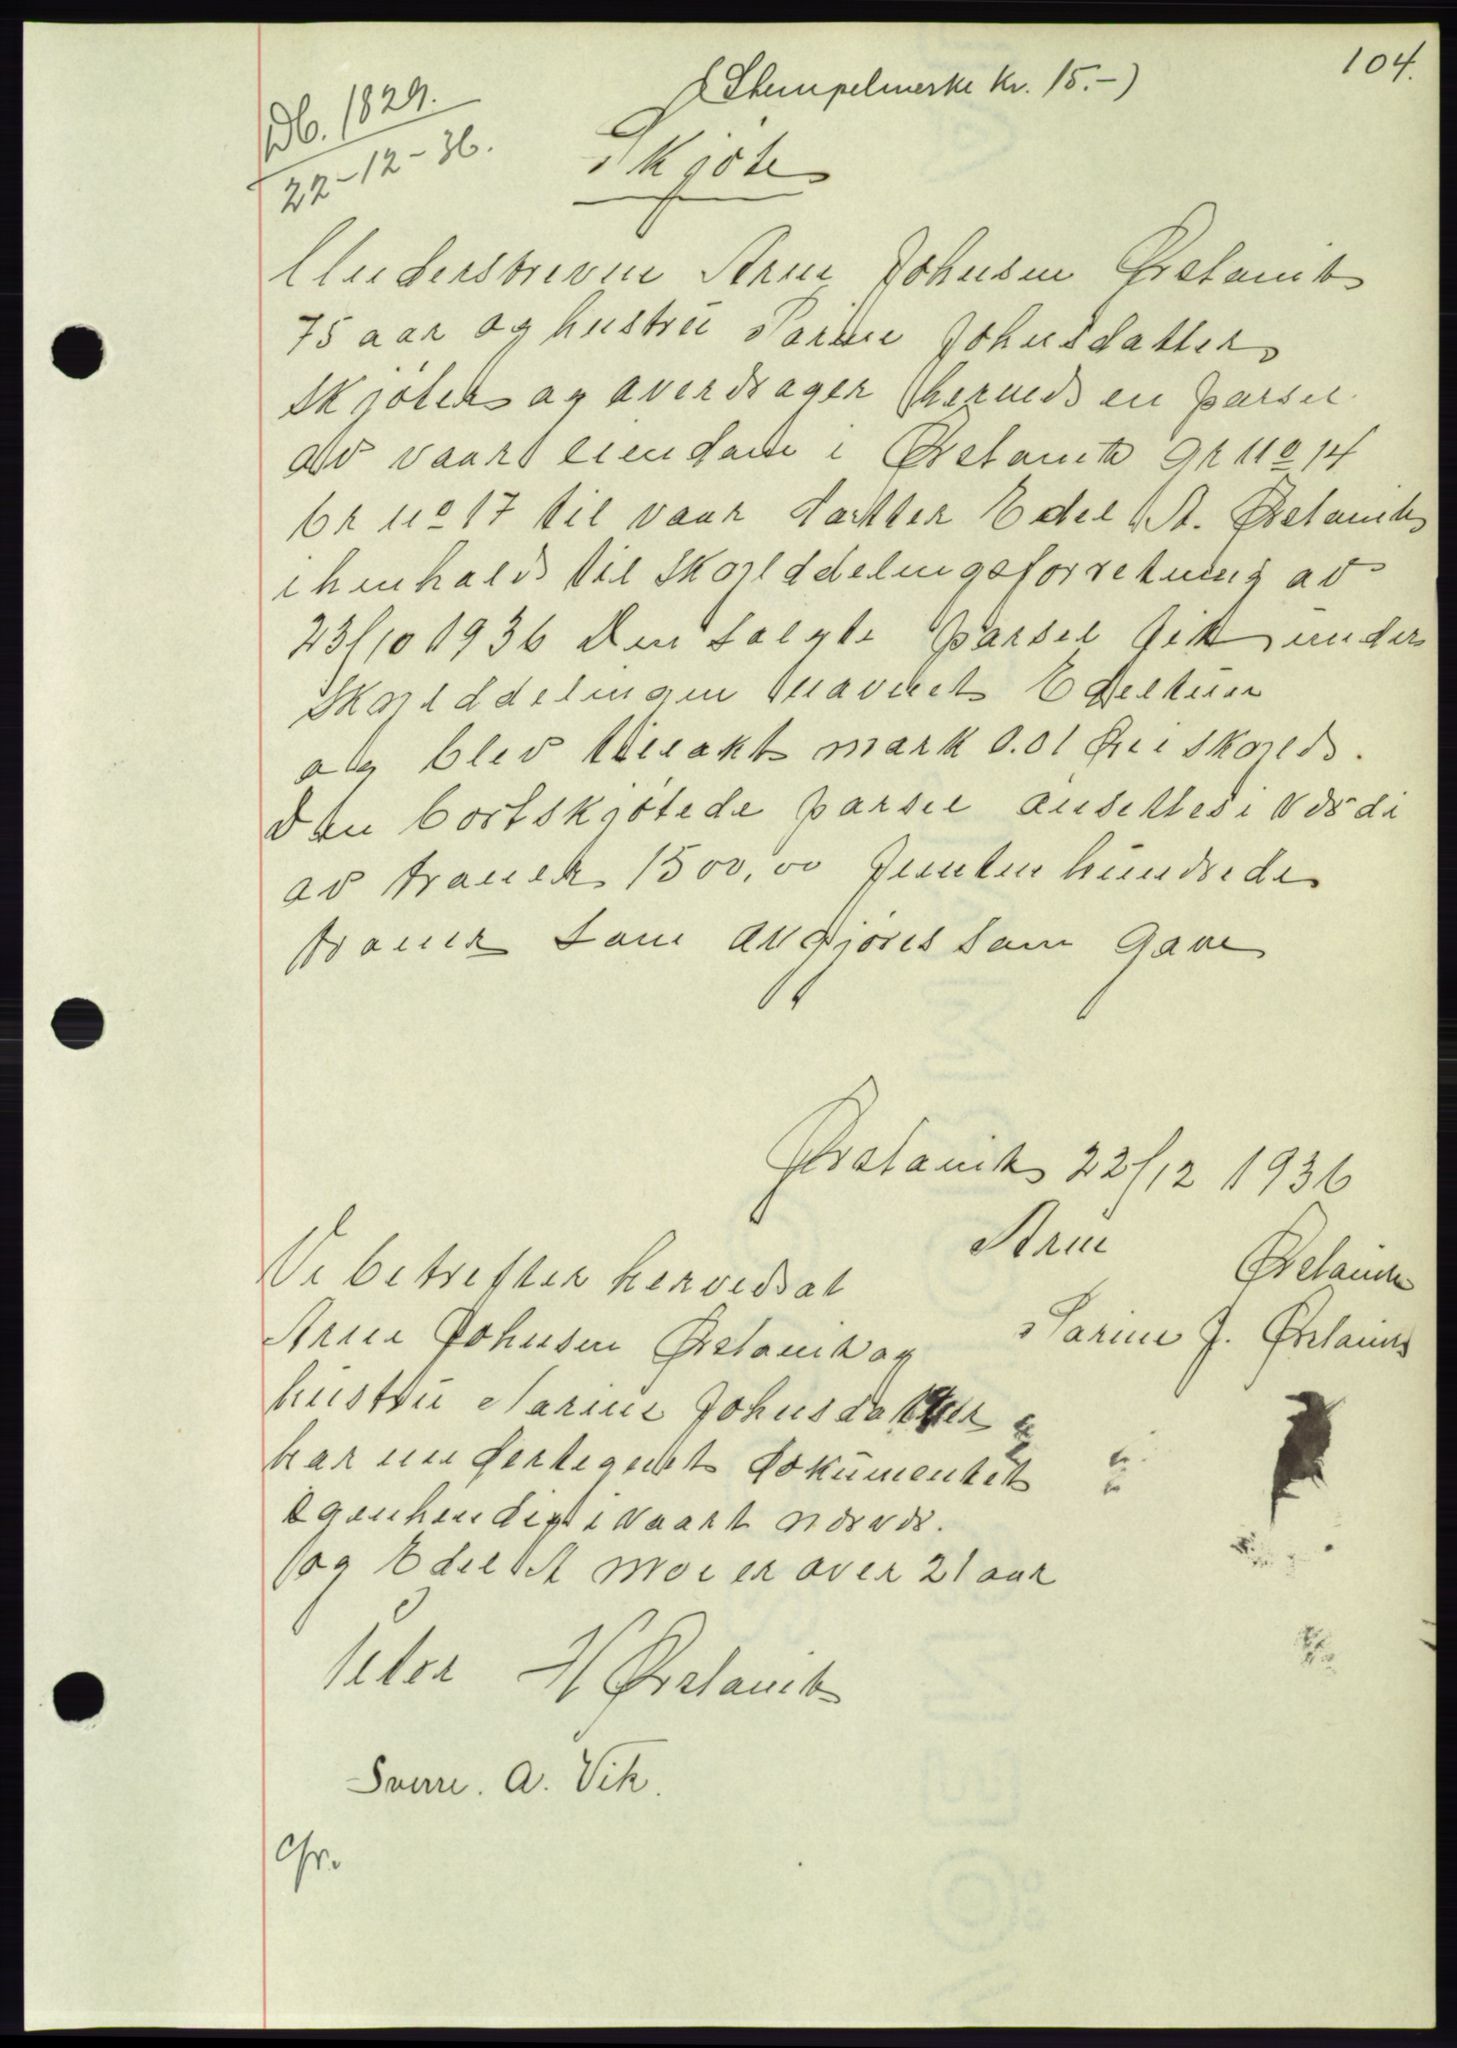 104.
(Stempelmerke kr. 15.-)
Db. 1829.
22-12-36.
Skjøte
Underskreven Arne Johnsen Ørstavik
75 aar og hustru Sarine Johnsdatter
skjøter og averdrager herved en parsel
av vaar eiendom i Ørstavik gr no 14
br no 17 til vaar datter Edel A. Ørstavik
ihenhold til skylddelingsforretning av
23/10 1936 Den solgte parsel fik under
skylddelingen navnet Edeltun
og blev tillakt mark 0.01 Øre i skyld.
Den bortskjøtede parsel ansettes i verdi
av kroner 1500,00 femten hundrede
kroner som avgjøres som gave
Ørstavik 22/12 1936
Arne Ørstavik
Sarine J. Ørstavik
Vi bekrefter herved at
Arne Johnsen Ørstavik og
hustru Sarine Johnsdatter
har undertegnet dokumentet
egenhendig i vaart nærvær.
og Edel A Moe er over 21 aar
Peter H Ørstavik
Sverre. A. Vik.